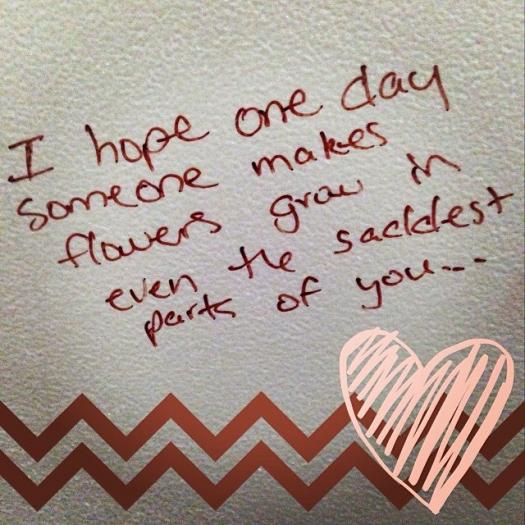 I hope one day
someone makes
flowers grow in
even the saddest
parts of you...